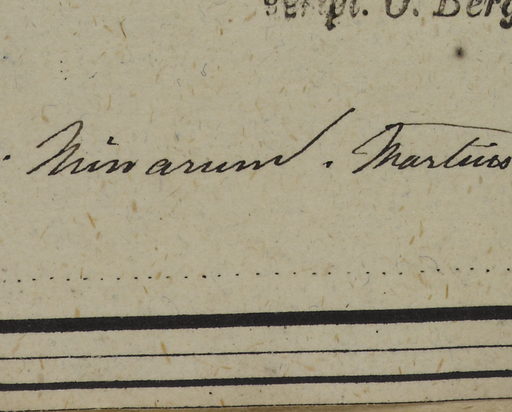 script. O. Berg
Minarum. Martius